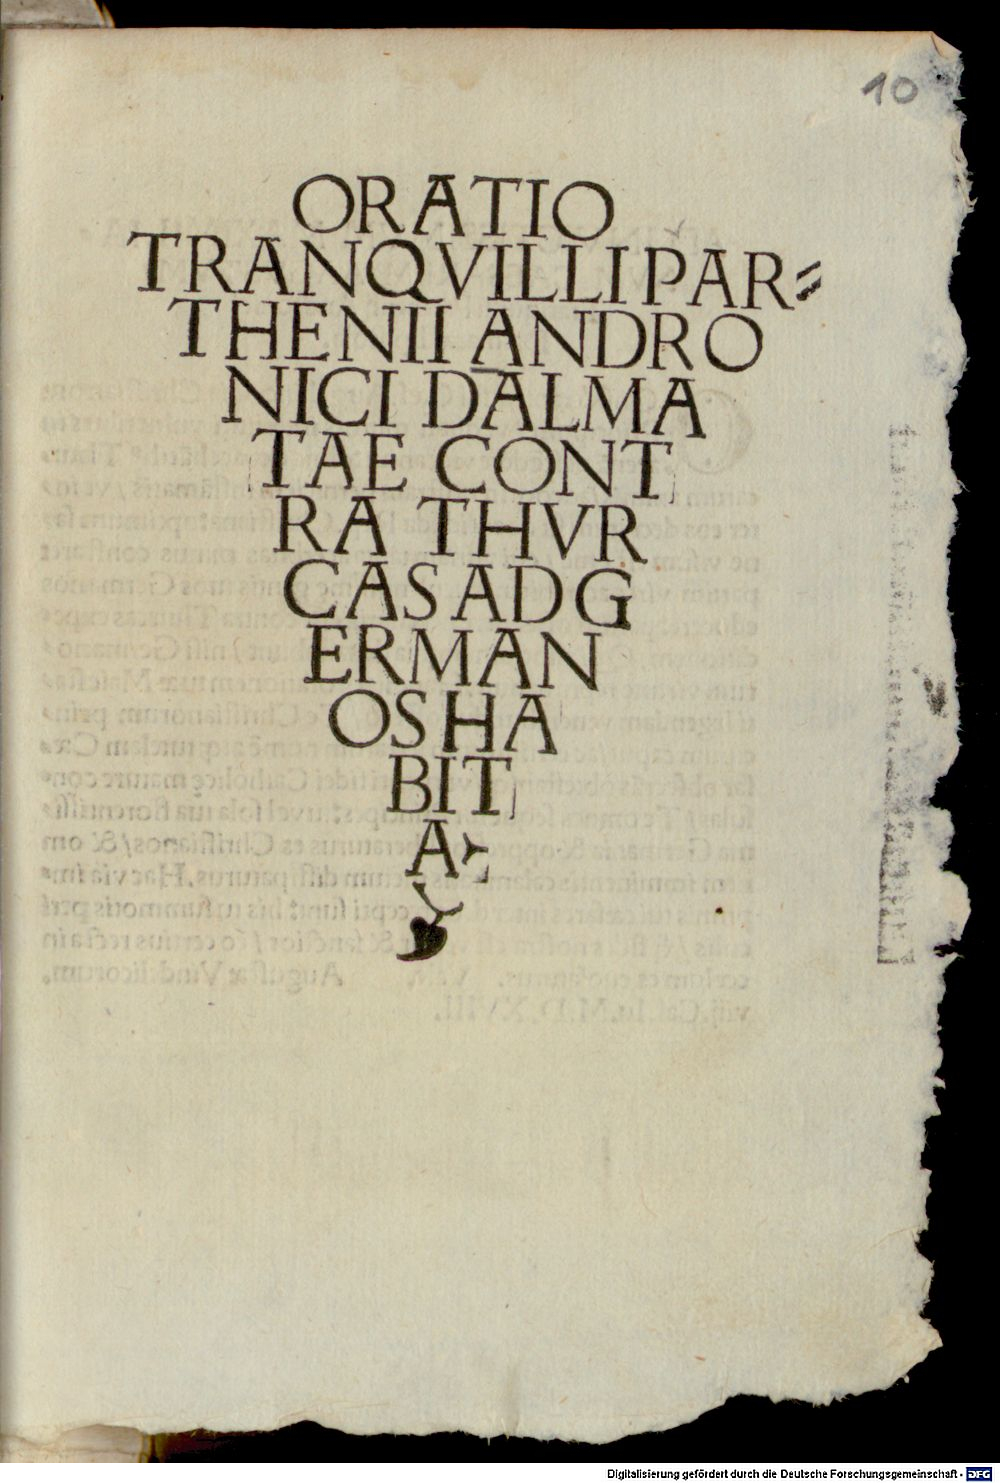 10
ORATIO
TRANQVILLI PAR⸗
THENII ANDRO
NICI DALMA
TAE CONT
RA THVR
CAS AD G
ERMAN
OS HA
BIT
A
Digitalisierung gefördert durch die Deutsche Forschungsgemeinschaft - DFG